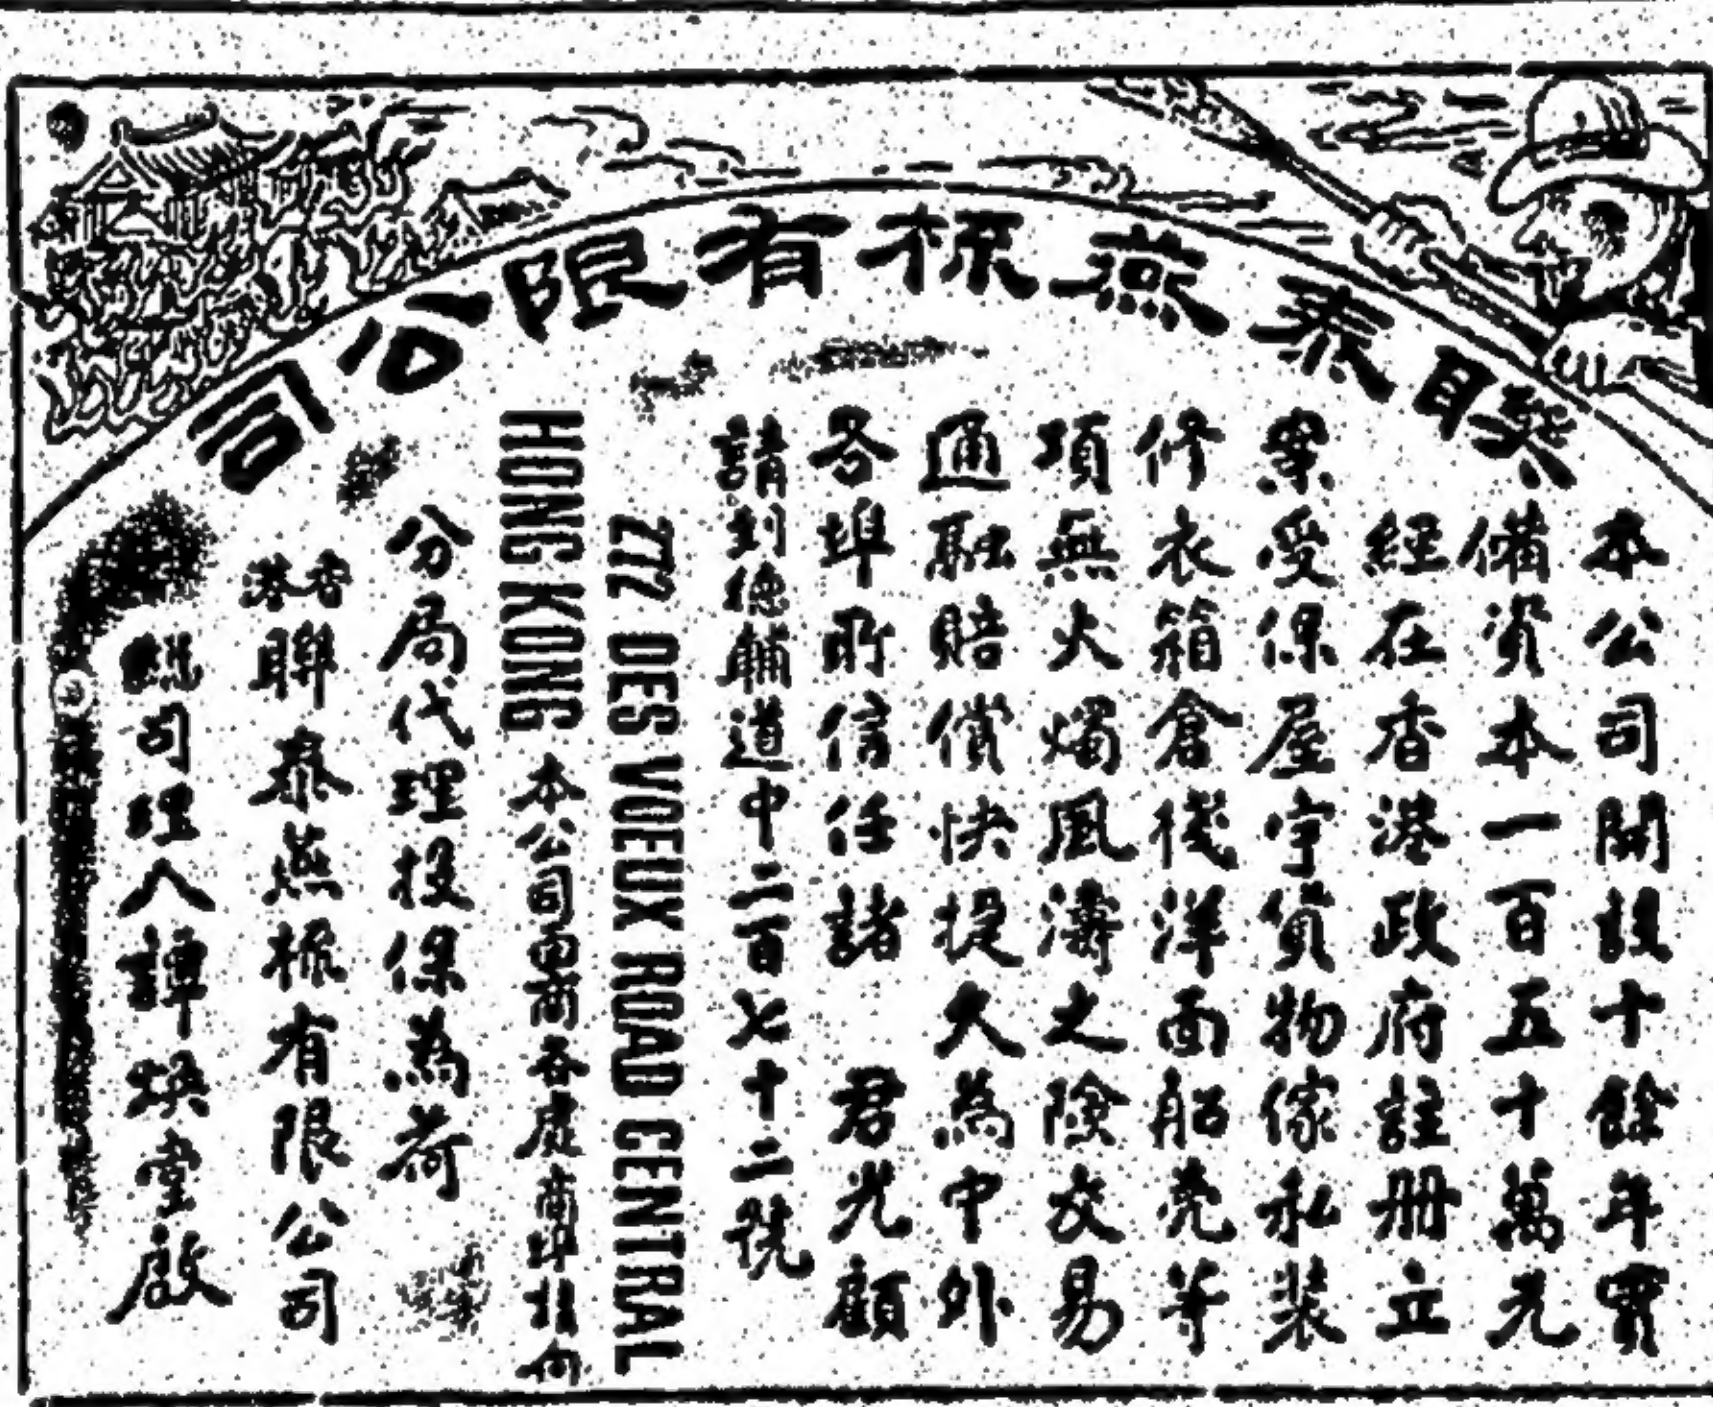 聯泰燕梳有限公司
本公司開設十餘年實
備資本一百五十萬元
經在香港政府註冊立
案受保屋宇貨物傢私裝
修衣箱倉棧洋面船売等
項無火燭風濤之險交易
通融賠償快捉久為中外
各埠所信任諸 君光顧
請到德輔道中二百七十二號
272 DES VOEUX ROAD CENTRAL
HONG KONG 本公司 各處
分局代理投保為荷
香港聯泰燕梳有限公司
總司理人譚煥堂啟